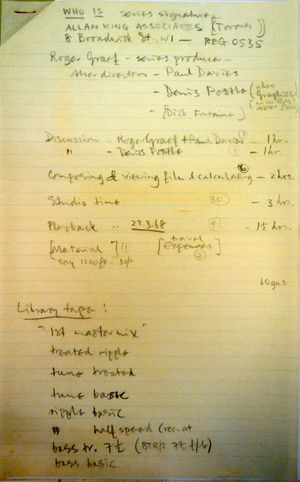 WHO IS series signature
ALLAN KING ASSOCIATES (Toronto)
8 Broadwick St. W1 — REG 0535
Roger Graef - series producer
other directors - Paul Davies
- Denis Postle (also Graphics)
- [Dick Fontaine]
Discussion - Roger Graef + Paul Davies - 1 hr.
" - Denis Postle - 1 hr.
Composing & viewing film & calculating - 2 hrs.
Studio time - 3 hr.
Playback .. 22.3.68 - 1½ hr.
[Material] ① [travel expenses ②]
say 1200ft. 30/-
60 gns
Library tape :
"1st master mix"
treated ripple
tune treated
tune basic
ripple basic
" half speed (rec. at
bass tr. 7½ (BTR/2 7½ f/b)
bass basic